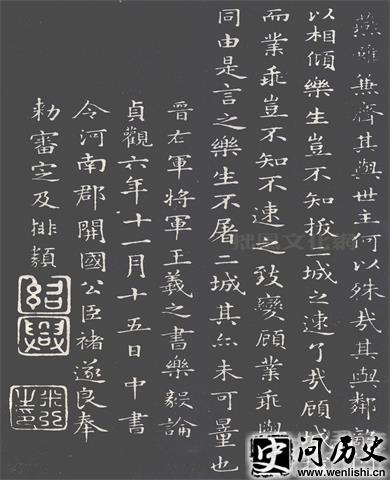 燕雖兼齊其與世主何以殊哉其與鄰
以相傾樂生豈不知拔城之速了哉顧城
而業乖豈不知不速之致變顧業乖與
同由是言之樂生不屠二城其亦未可量也
晉右軍將軍王羲之書樂毅論
貞觀六年十一月十五日中書
令河南郡開國公臣褚遂良奉
勅審定及排類
紹興
拙風文化網
史问历史
www.wenlishi.cn